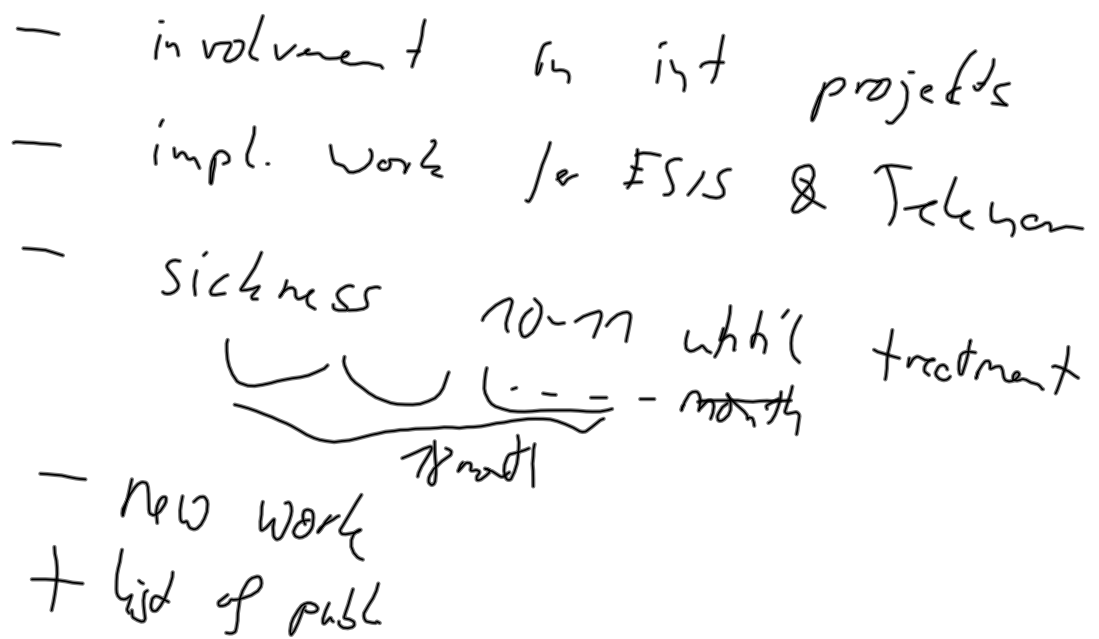 - involvment in int projekts
- impl. work for ESIS & Teleman
- sickness 10-11 until treatment
month
18 month
- new work
+ list of publ